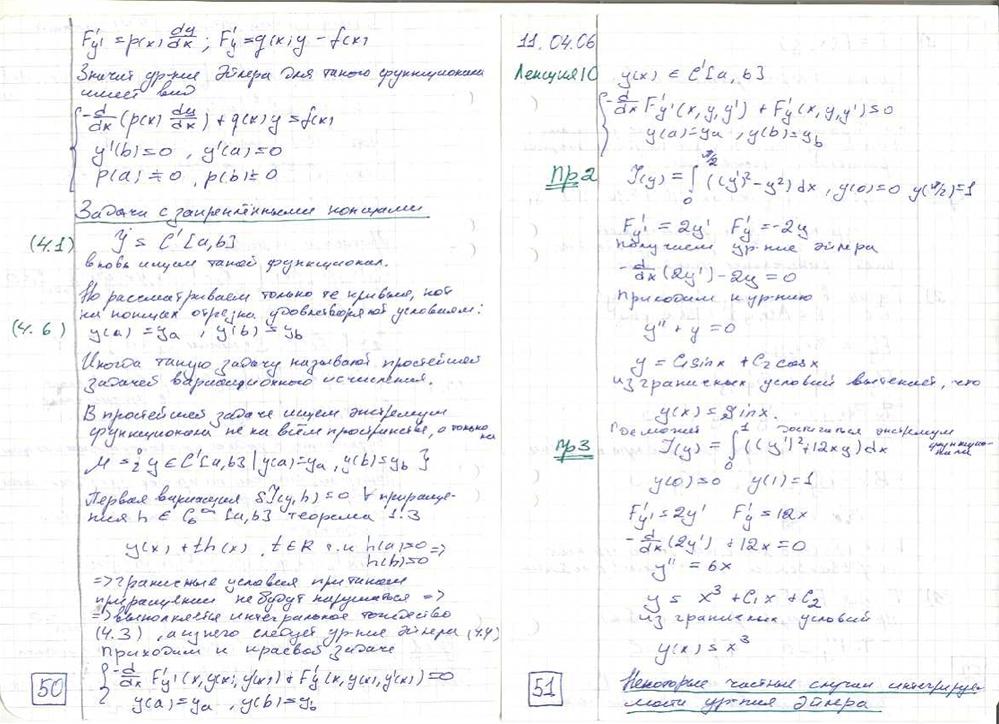 F'y' = p(x) dy/dx ; F'y = q(x)y - f(x)
Значит ур-ние Эйлера для такого функционала
имеет вид
{ -d/dx (p(x) dy/dx) + q(x)y = f(x)
y'(b) = 0 , y'(a) = 0
p(a) ≠ 0 , p(b) ≠ 0
Задачи с закреплёнными концами
(4.1) Y = C'[a,b]
вновь ищем такой функционал.
Но рассматриваем только те кривые, кот
на концах отрезка удовлетворяют условиям:
(4.6) y(a) = ya , y(b) = yb
Иногда такую задачу называют простейшей
задачей вариационного исчисления.
В простейшей задаче ищем экстремум
функционала не на всём пространстве, а только на
M = { y ∈ C'[a,b] | y(a)=ya, y(b)=yb }
Первая вариация δJ(y,h) = 0 ∀ прираще-
ния h ∈ C0^∞ [a,b] теорема 1.3
y(x) + th(x) , t ∈ R т.к h(a)=0 =>
h(b)=0
=> граничные условия при таком
приращении не будут нарушаться =>
=> выполняется интегральное тождество
(4.3) , а из него следует ур-ние Эйлера (4.4)
Приходим к краевой задаче
{ -d/dx F'y'(x, y(x), y'(x)) + F'y(x, y(x), y'(x)) = 0
y(a) = ya , y(b) = yb
50
11.04.06
Лекция 10 y(x) ∈ C'[a,b]
{ -d/dx F'y'(x,y,y') + F'y(x,y,y') = 0
y(a) = ya , y(b) = yb
Пр 2 J(y) = ∫₀^{π/2} ((y')² - y²) dx , y(0) = 0 y(π/2) = 1
F'y' = 2y' F'y = -2y
Получаем ур-ние Эйлера
-d/dx (2y') - 2y = 0
Приходим к ур-нию
y'' + y = 0
y = C1 sinx + C2 cosx
из граничных условий вытекает, что
y(x) = sinx.
Где может достигаться экстремум функционала
Пр 3 J(y) = ∫₀¹ ((y')² + 12xy) dx
y(0) = 0 y(1) = 1
F'y' = 2y' F'y = 12x
-d/dx (2y') + 12x = 0
y'' = 6x
y = x³ + C1x + C2
из граничных условий
y(x) = x³
51
Некоторые частные случаи интегрируе-
мости ур-ния Эйлера